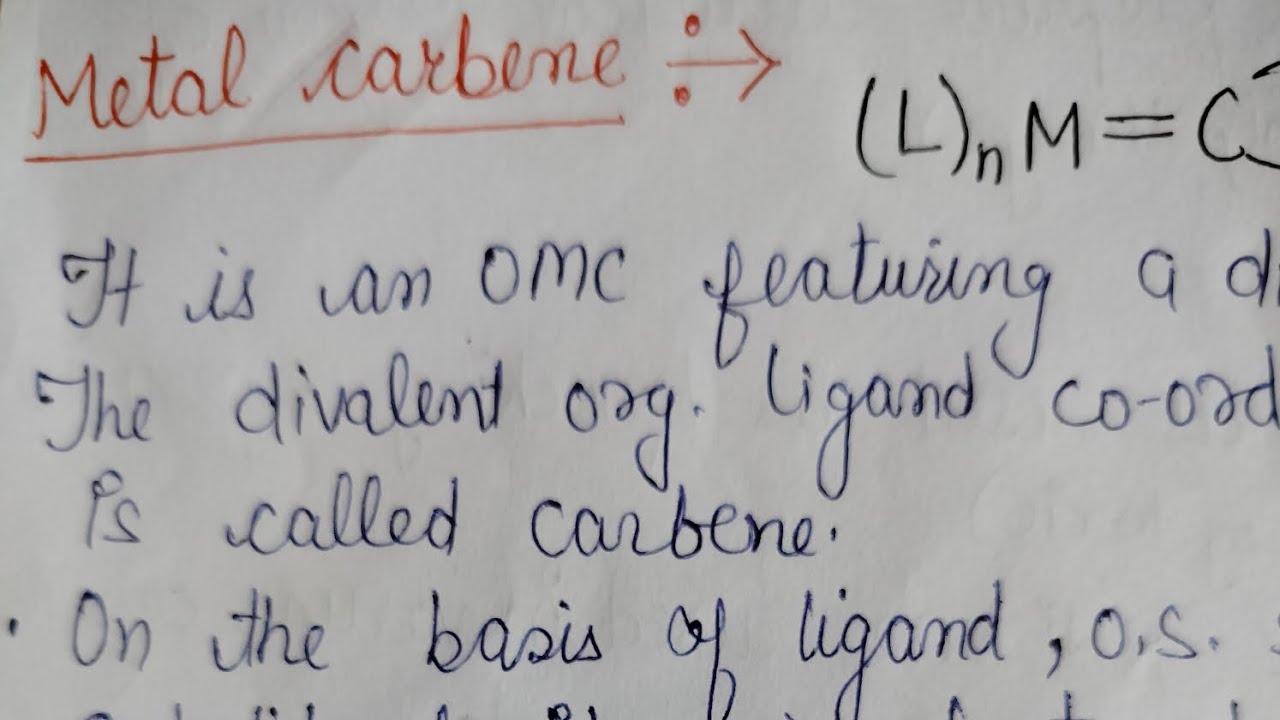 Metal carbene ÷→ (L)n M = C
It is an OMC featuring a di
The divalent org. ligand co-ord
is called carbene.
• On the basis of ligand, O.S.